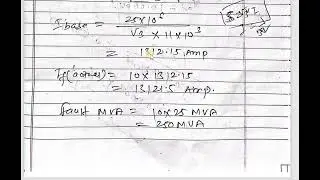 I base = 25×10⁶
√3 × 11×10³
= 1312.15 Amp
If (actual) = 10 × 1312.15
= 13121.5 Amp.
fault MVA = 10×25 MVA
= 250MVA